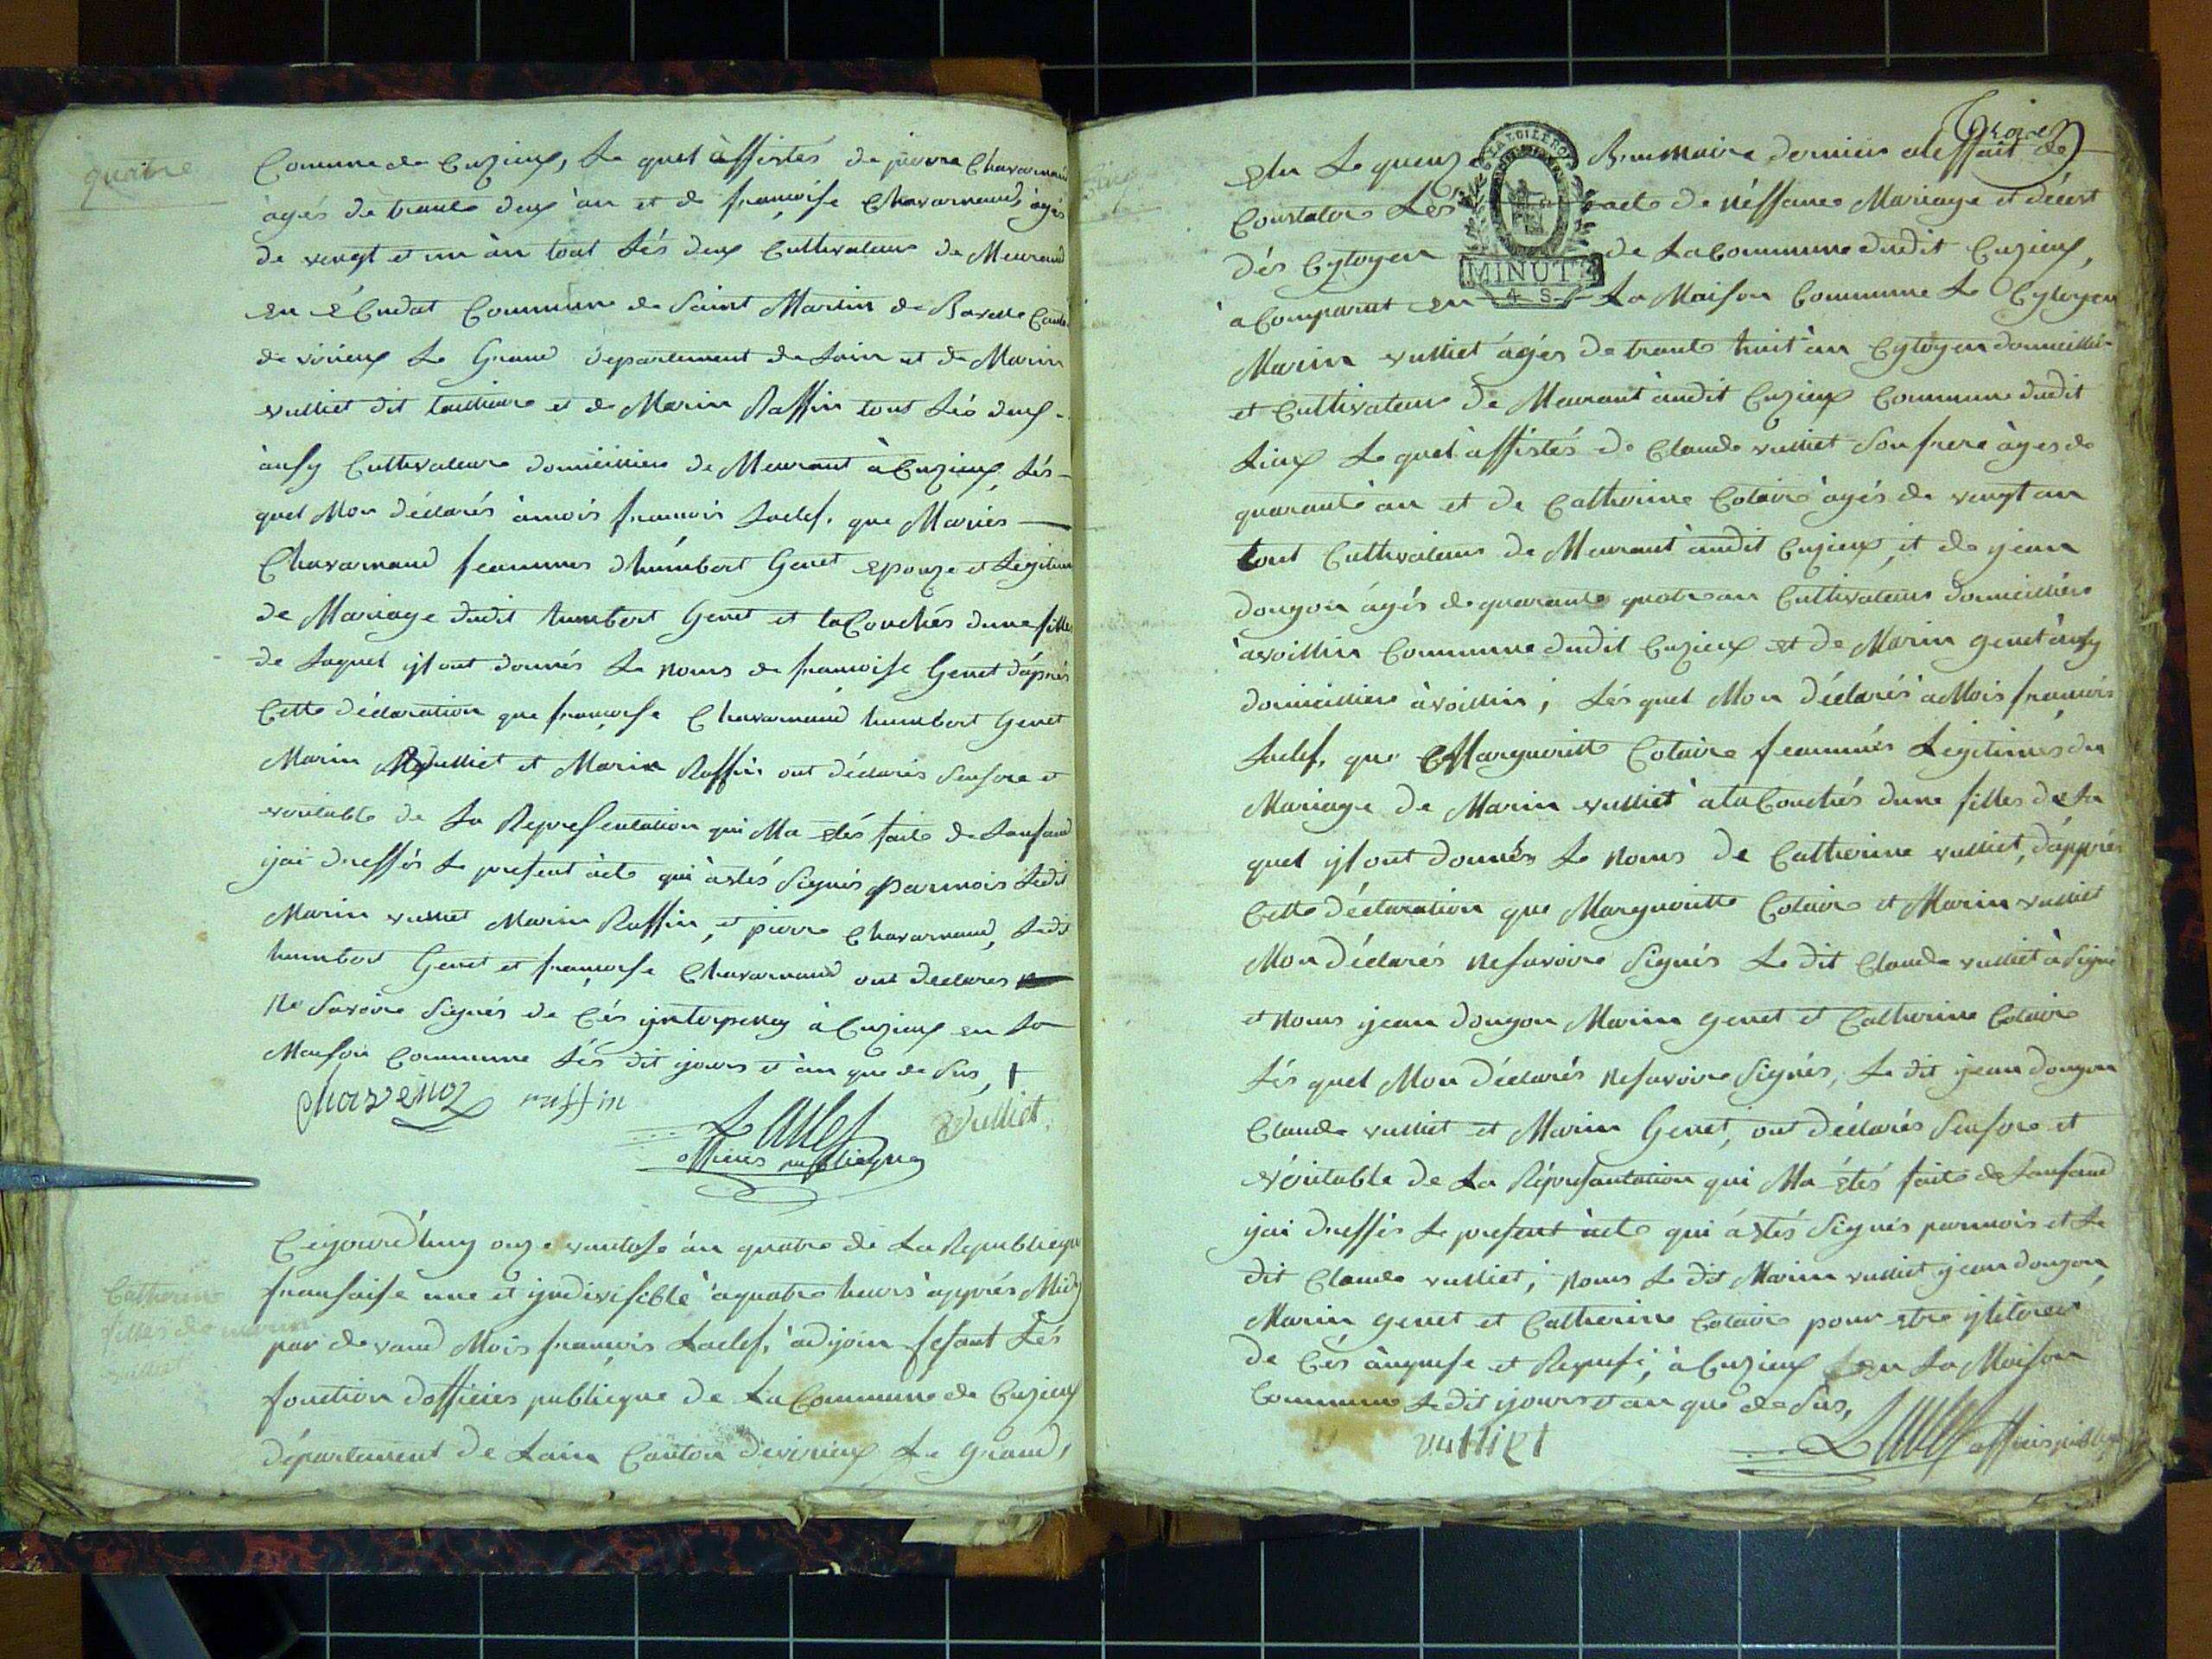 quatre
Commune de Cuzieux, Le quel àssistés de pierre Chavarnaud
àgés de trante deux àn et de francoise Chavarnaud àgés
de vengt et un àn tout Lés deux Cultivateur de Meurand
en Commune de Saint Martin de Bavelle Canton
de virieux Le Grand departement de Lain et de Marin
vulliet dit et de Marin Raffin tout Lés deux
àussy Cultivateure domicilliere de Meurant à Cuzieux Lés
quel Mon déclarés àmois francois Laclef, que Mariés
Chavarnaud feammes dhumbert Genet epouze et Legitime
de Mariage dudit humbert Genet et taCouchés dune filles
de Laquel ylont donnés Le noms de francoise Genet dáprés
Cette déclaration que francoise Chavarnaud humbert Genet
Marin vulliet et Marin Raffin ont déclarés Senfore et
veritable de La Representation qui Ma etés faite de Lenfand
ijai dressés Le present àcte qui àetés Signés parmois Ledit
Marin vulliet Marin Raffin, et pierre Chavarnaud, Ledit
humbert Genet et francoise Chavarnaud ont declares
Ne Savoire Signés de Cés ynterpeney à Cuzieux en La
Maison Commune Lés dit ijours et àn que de Sus,
Chavenoz raffin
Laclef vulliet
officies publicque
Catherine
filles de marin
vulliet
Ceijourdhuy onze vantose án quatre de La Republicque
fransaise une et yndivisible à quatre heurs àpprés Midy
par de vand Mois francois Laclef, àdjoin fesant Lés
fonction dofficies publicque de La Commune de Cuzieux
département de Lain Canton devirieux Le Grand,
Troize
elu Le quenze Brumaire dernier aleffait de
Constatere Lés acte de néssance Mariage et décest
dés Cytoyen de La Commune dudit Cuzieux,
MINUTE
4 S
à Comparut en La Maison Commune Le Cytoyen
Marin vulliet ágés de trante huit àn Cytoyen domicillier
et Cultivateur de Meurant àudit Cuzieux Commune dudit
Lieux Le quel àssistés de Claude vulliet Son frere àges de
quarante àn et de Catherine Colaire àgés de vengt an
tout Cultivateur de Meurant àudit Cuzieux, et de ijean
dougon àgés de quarante quatre an Cultivateur domicilliére
àvoillin Commune dudit Cuzieux et de Marin genet àussy
domicilliere àvoillin; Lés quel Mon déclarés àMois francois
Laclef, que Margueritte Colaire feammés Legitimes du
Mariage de Marin vulliet àlaCouchés dune filles de La
quel ylont donnés Le noms de Catherine vulliet, dápprés
Cette déclaration que Margueritte Colaire et Marin vulliet
Mon déclarés Nesavoire Signés Le dit Claude vulliet à Signé
et noms ijean dougon Marin genet et Catherine Colaire
Lés quel Mon déclarés Nesavoire Signés, Le dit ijean dougon
Claude vulliet et Marin Genet, ont déclarés Senfore et
véritable de La Réprésantation qui Ma étés faite de Lanfand
ijai dressés Le present àcte qui áetés Signés parmois et Le
dit Claude vulliet; noms Le dit Marin vulliet ijean dougon,
Marin genet et Catherine Colaire pour etre
de Cés et à Cuzieux en La Maison
Commune Le dit ijours et an que de Sus,
vulliet Laclef officies publicque